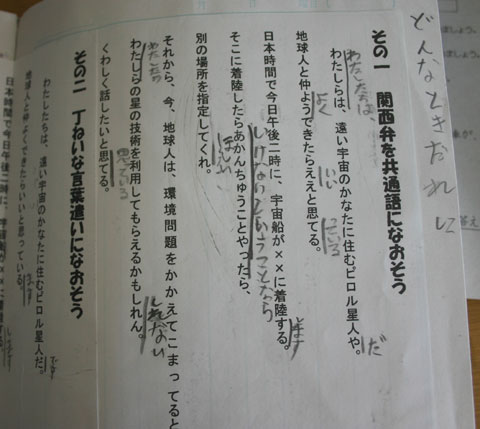 どんなときだれに
その一 関西弁を共通語になおそう
わたしらは、遠い宇宙のかなたに住むピロル星人や。
わたしたちは
だ
地球人と仲ようできたらええと思てる。
よく
いい
日本時間で今日午後二時に、宇宙船が××に着陸する。
そこに着陸したらあかんちゅうことやったら、
いけないということなら
別の場所を指定してくれ。
それから、今、地球人は、環境問題をかかえてこまってると
わたしらの星の技術を利用してもらえるかもしれん。
わたしたちの
しれない
くわしく話したいと思てる。
思っている
その二 丁ねいな言葉遣いになおそう
わたしたちは、遠い宇宙のかなたに住むピロル星人だ。
です
地球人と仲よくできたらいいと思っている。
日本時間で今日午後二時に、宇宙船が××に着陸す